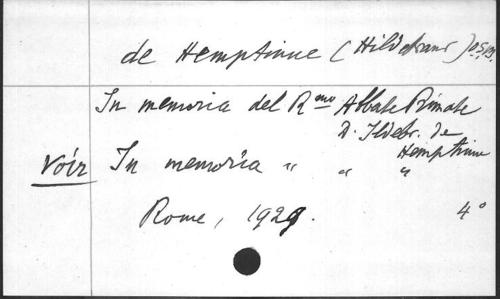 de Hemptinne (Hildebrand) O.S.B.
In memoria del Rmo Abbate Primate
D. Ildebr. de
Hemptinne
Voir In memoria " " "
Rome, 1929. 4°